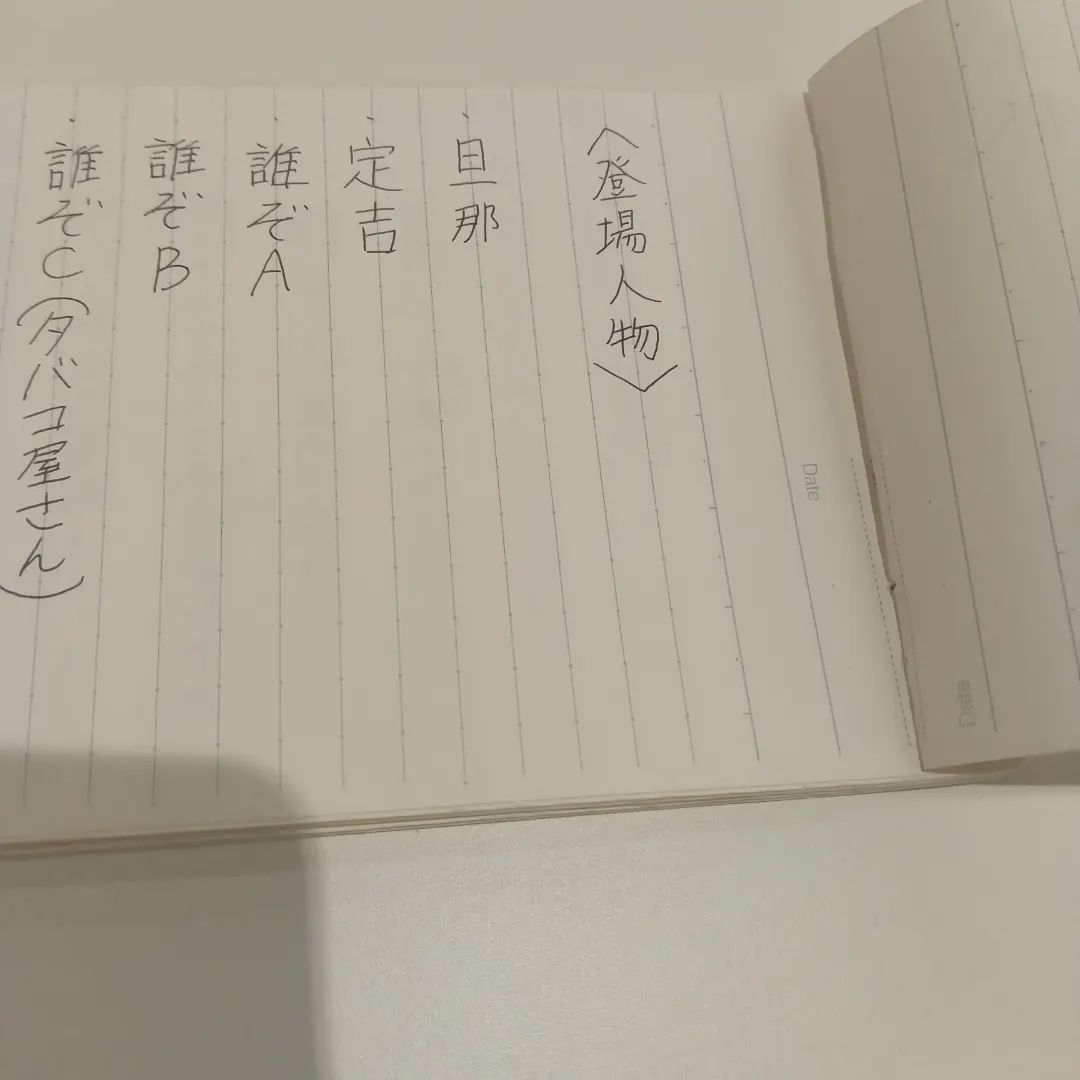 〈登場人物〉
・旦那
・定吉
・誰ぞA
・誰ぞB
・誰ぞC(タバコ屋さん)
Date
Date